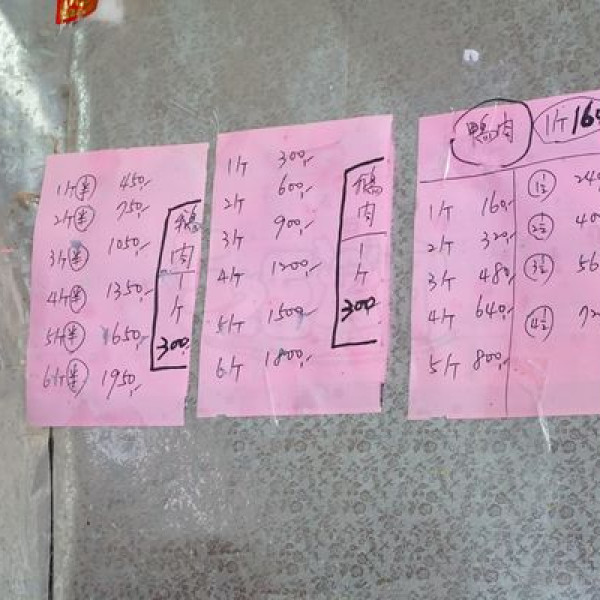 1斤半 450,-
2斤半 750,-
3斤半 1050,-
4斤半 1350,-
5斤半 1650,-
6斤半 1950,-
鵝
肉
1
斤
300
1斤 300,-
2斤 600,-
3斤 900,-
4斤 1200,-
5斤 1500,-
6斤 1800,-
鵝
肉
1
斤
300
鴨肉 1斤160
1斤 160,-
2斤 320,-
3斤 480,-
4斤 640,-
5斤 800,-
1½ 240
2½ 400
3½ 56
4½ 72